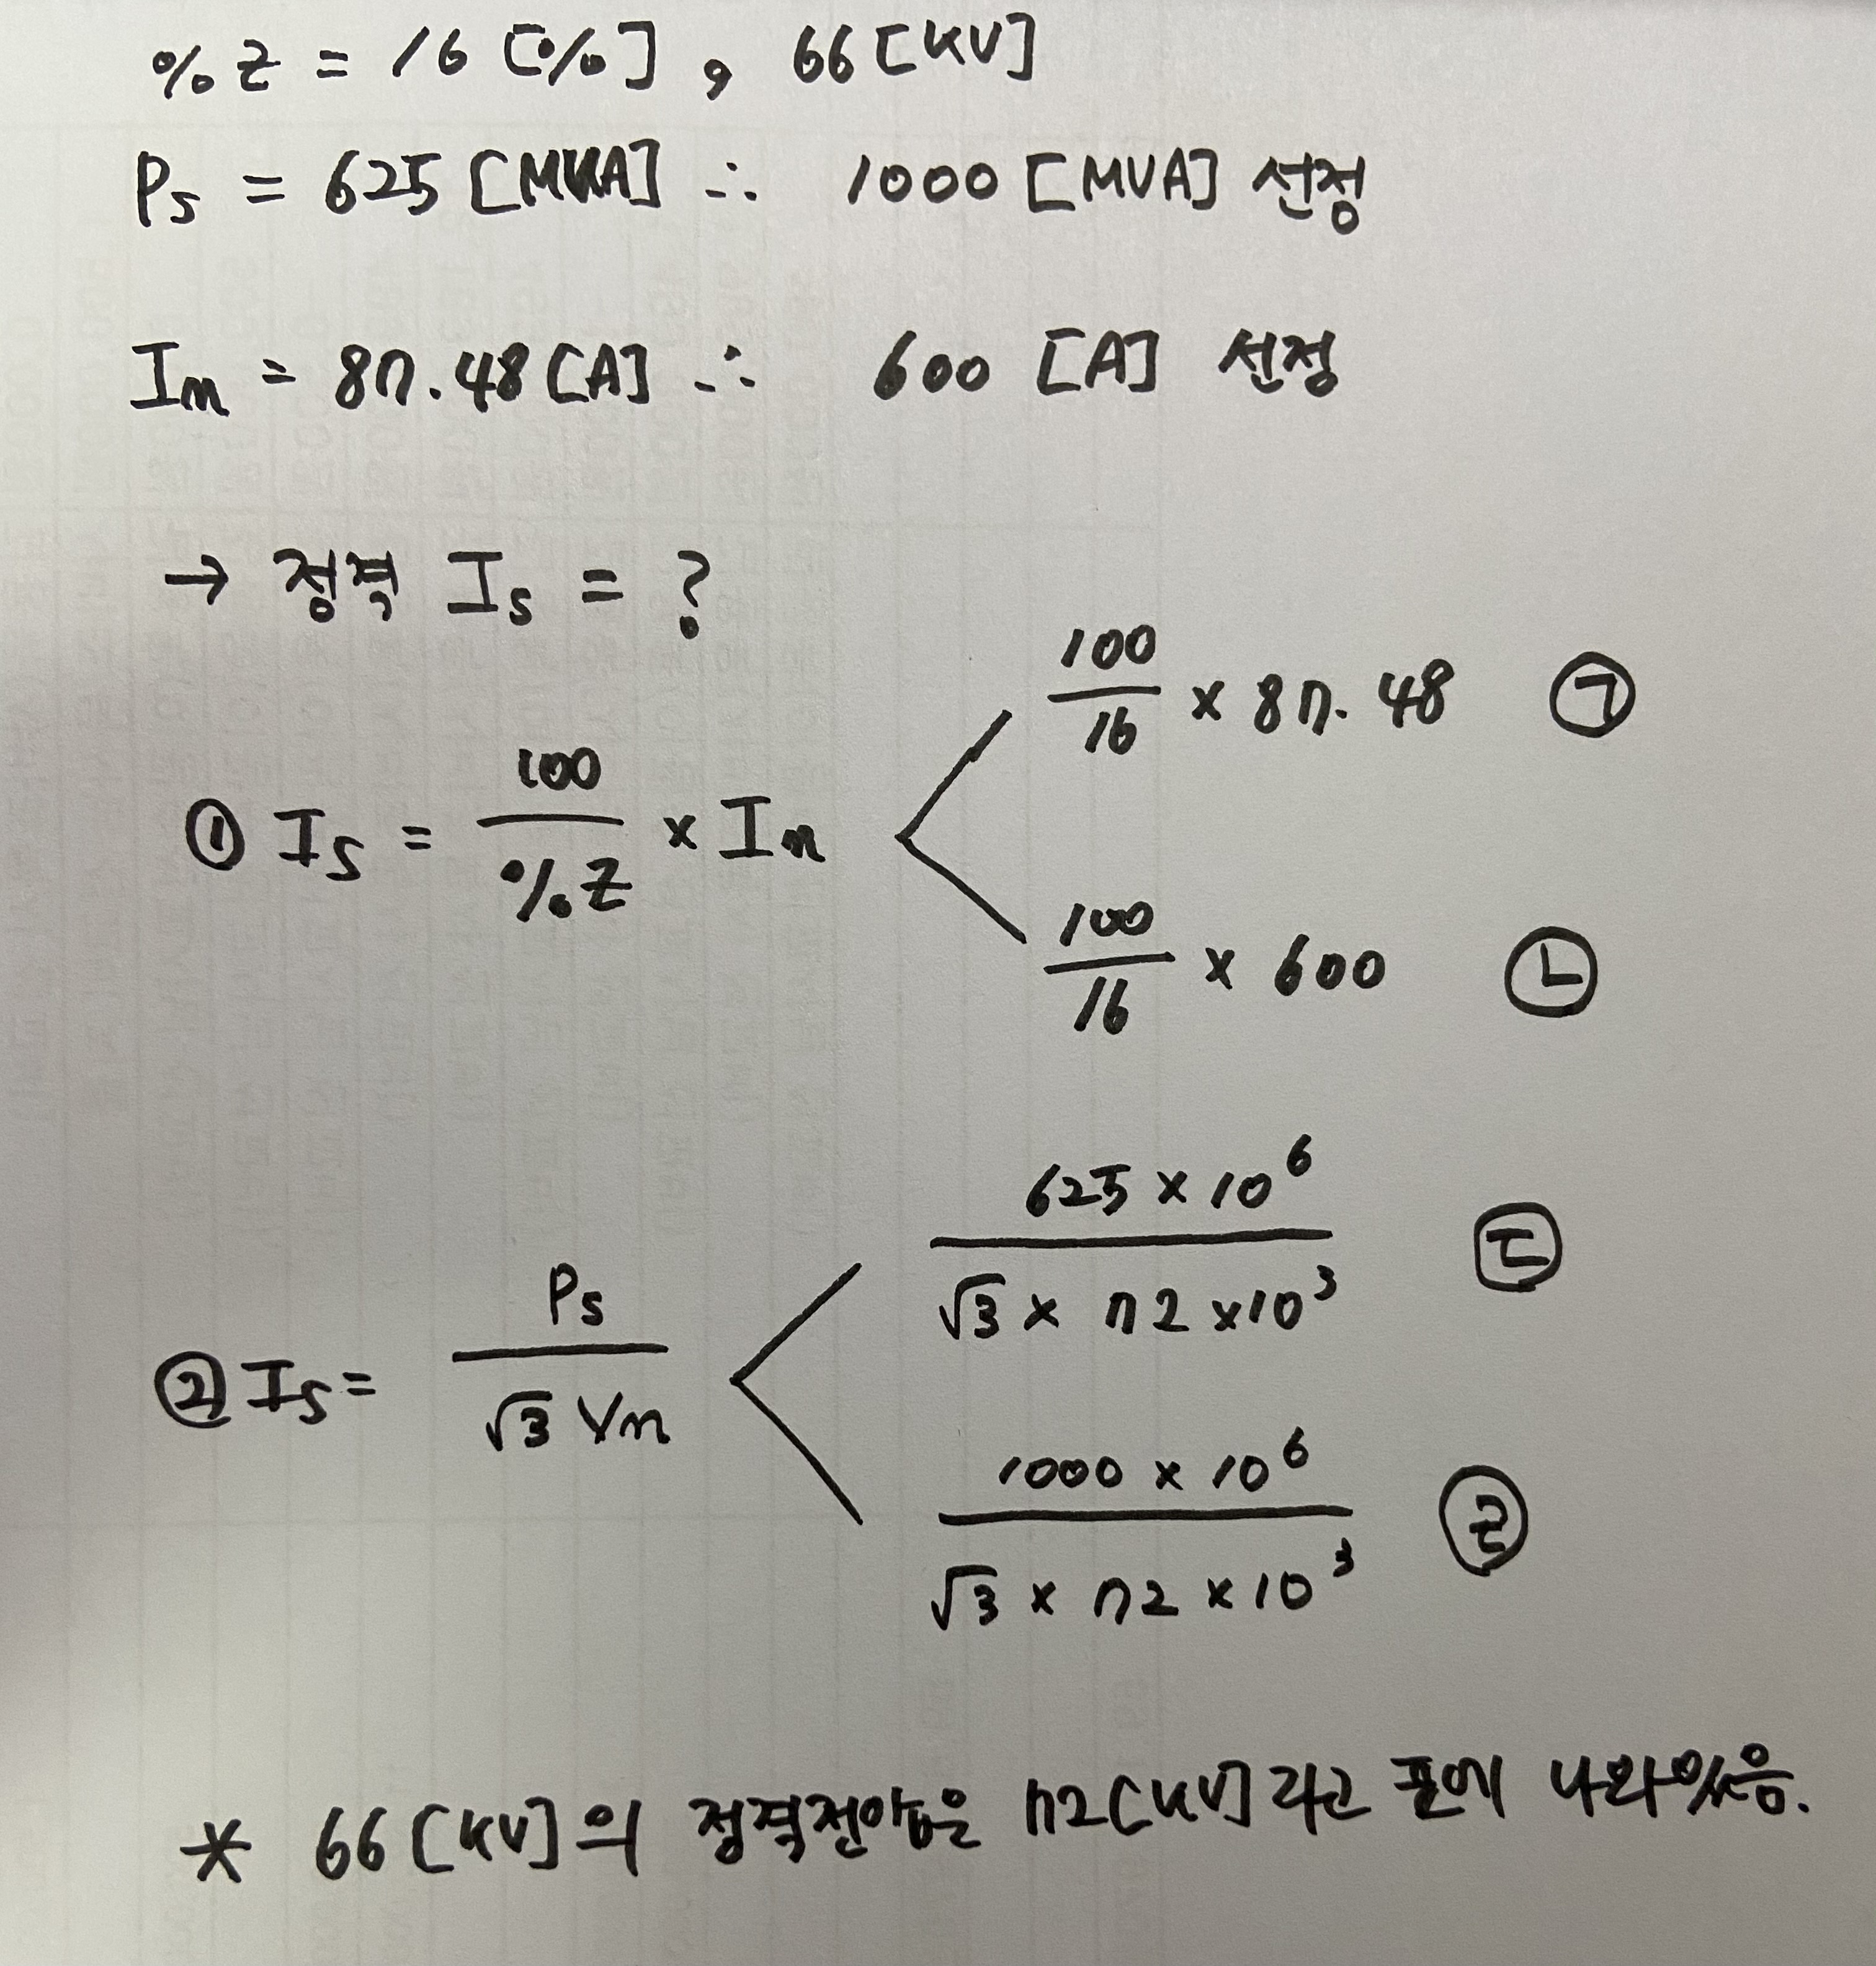 %Z = 16 [%], 66 [KV]
Ps = 625 [MVA] ∴ 1000 [MVA] 선정
In = 87.48 [A] ∴ 600 [A] 선정
→ 정격 Is = ?
① Is = 100/%Z × In
100/16 × 87.48 ㉠
100/16 × 600 ㉡
② Is = Ps/√3 Vn
625 × 10⁶/√3 × 72 × 10³ ㉢
1000 × 10⁶/√3 × 72 × 10³ ㉣
* 66 [KV]의 정격전압은 72 [KV] 라고 표에 나와있음.